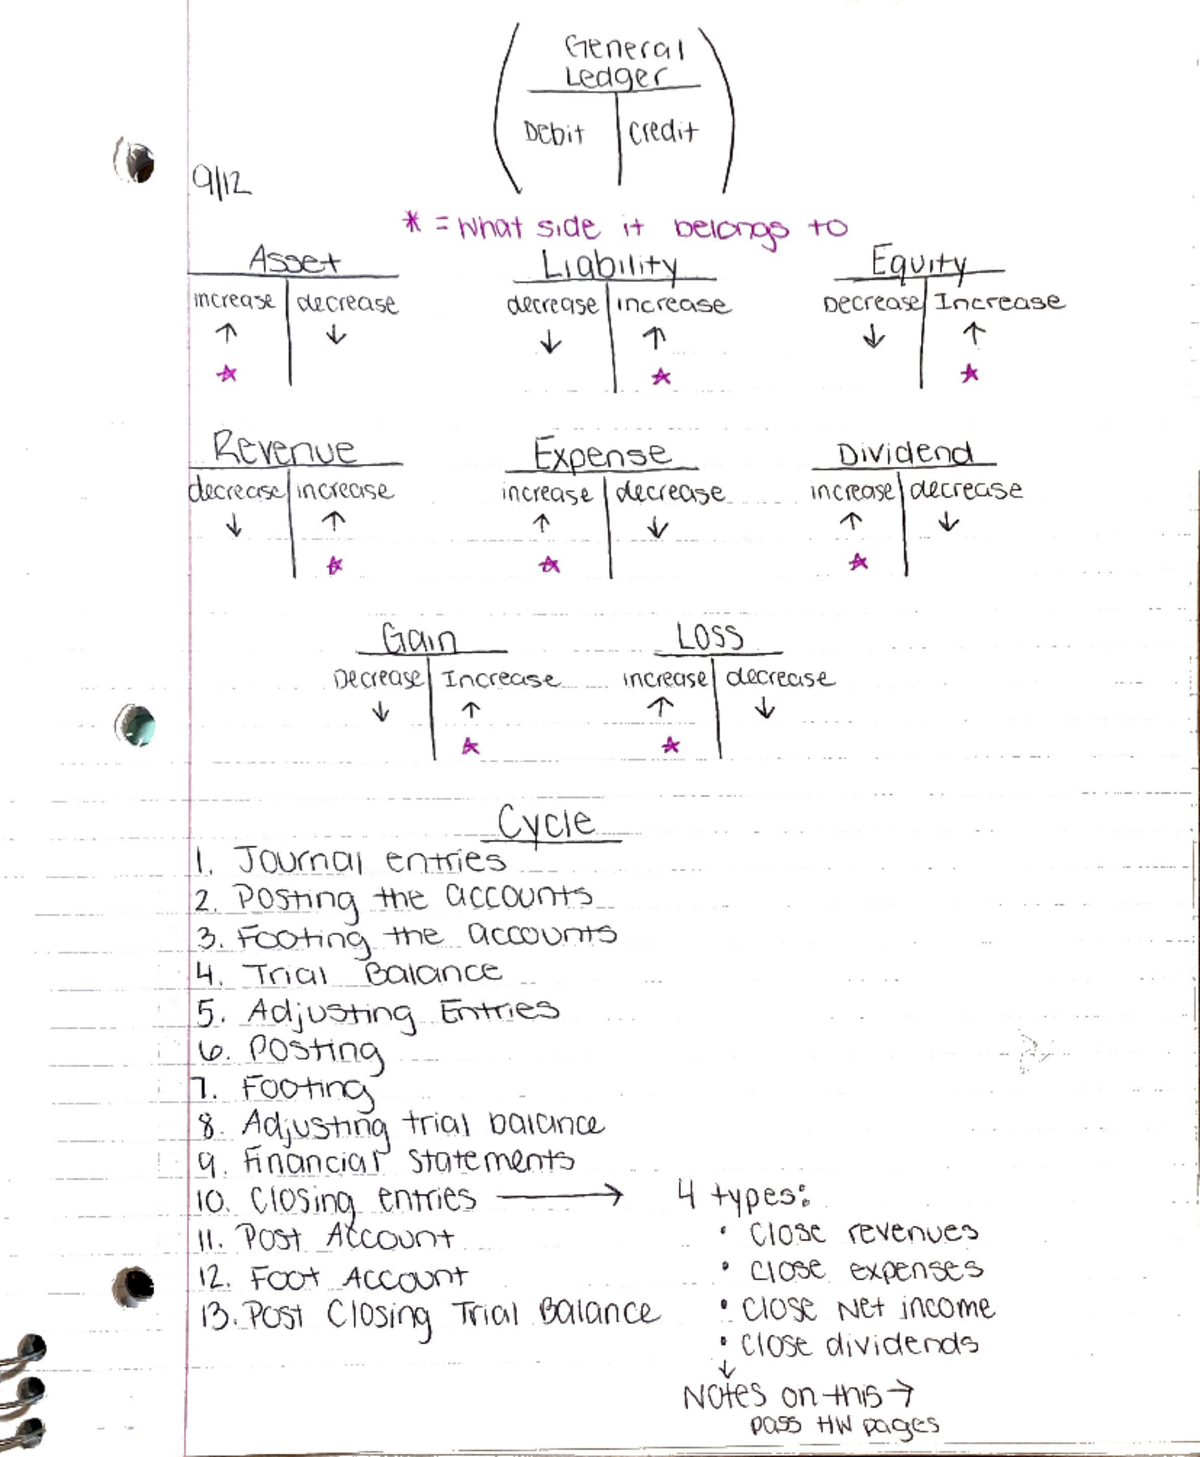 General
Ledger
Debit credit
9/12
* = what side it belongs to
Asset Liability Equity
increase decrease decrease increase Decrease Increase
↑ ↓ ↓ ↑ ↓ ↑
☆ ☆ ☆
Revenue Expense Dividend
decrease increase increase decrease increase decrease
↓ ↑ ↑ ↓ ↑ ↓
☆ ☆ ☆
Gain Loss
Decrease Increase increase decrease
↓ ↑ ↑ ↓
☆ ☆
Cycle
1. Journal entries
2. Posting the accounts
3. Footing the accounts
4. Trial Balance
5. Adjusting Entries
6. Posting
7. Footing
8. Adjusting trial balance
9. Financial statements
10. Closing entries → 4 types:
11. Post Account • Close revenues
12. Foot Account • close expenses
13. Post Closing Trial Balance • close Net income
• close dividends
↓
Notes on this →
pass HW pages